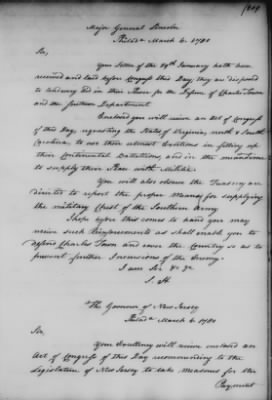 Major General Lincoln
Philada March 6. 1780
Sir,
Your Letter of the 29th January hath been
received and laid before Congress this Day; they are disposed
to
in their Power for the Defence of Charles Town
and the Southern Department
Enclosed you will receive an Act of Congress
of this Day, requesting the States of Virginia, north & South
Carolina, to use their utmost Exertions in filling up
their Continental Battalions, and in the meantime
to supply their Place with Militia.
You will also observe the Treasury are
directed to report the proper Means for supplying
the military Chest of the Southern Army
I hope before this comes to hand you may
receive such Reinforcements as shall enable you to
defend Charles Town and cover the Country so as to
prevent further Incursions of the Enemy.
I am Sir &c &c
S. H.
The Governor of New Jersey
Philada March 6. 1780
Sir.
Your Excellency will receive enclosed an
Act of Congress of this Day recommending to the
Legislature of New Jersey to take Measures for the
Payment